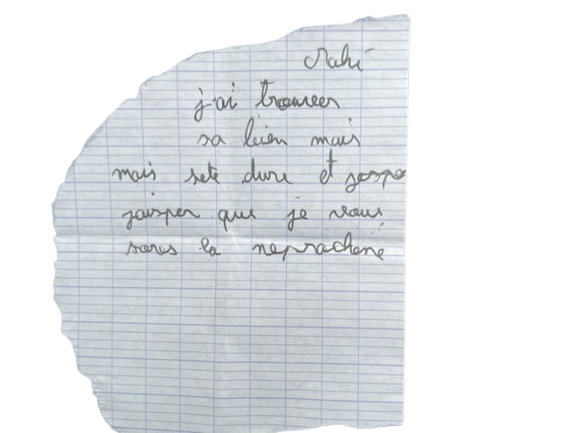 Mahé
j'ai trouver
sa bien mais
mais sete dure et jespe
jaisper que je vous
sares la neprachene